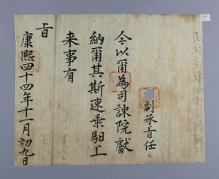 副承旨任
今以爾為司諫院獻
納爾其斯速乘馹上
来事有
旨
康熙四十四年十二月初九日